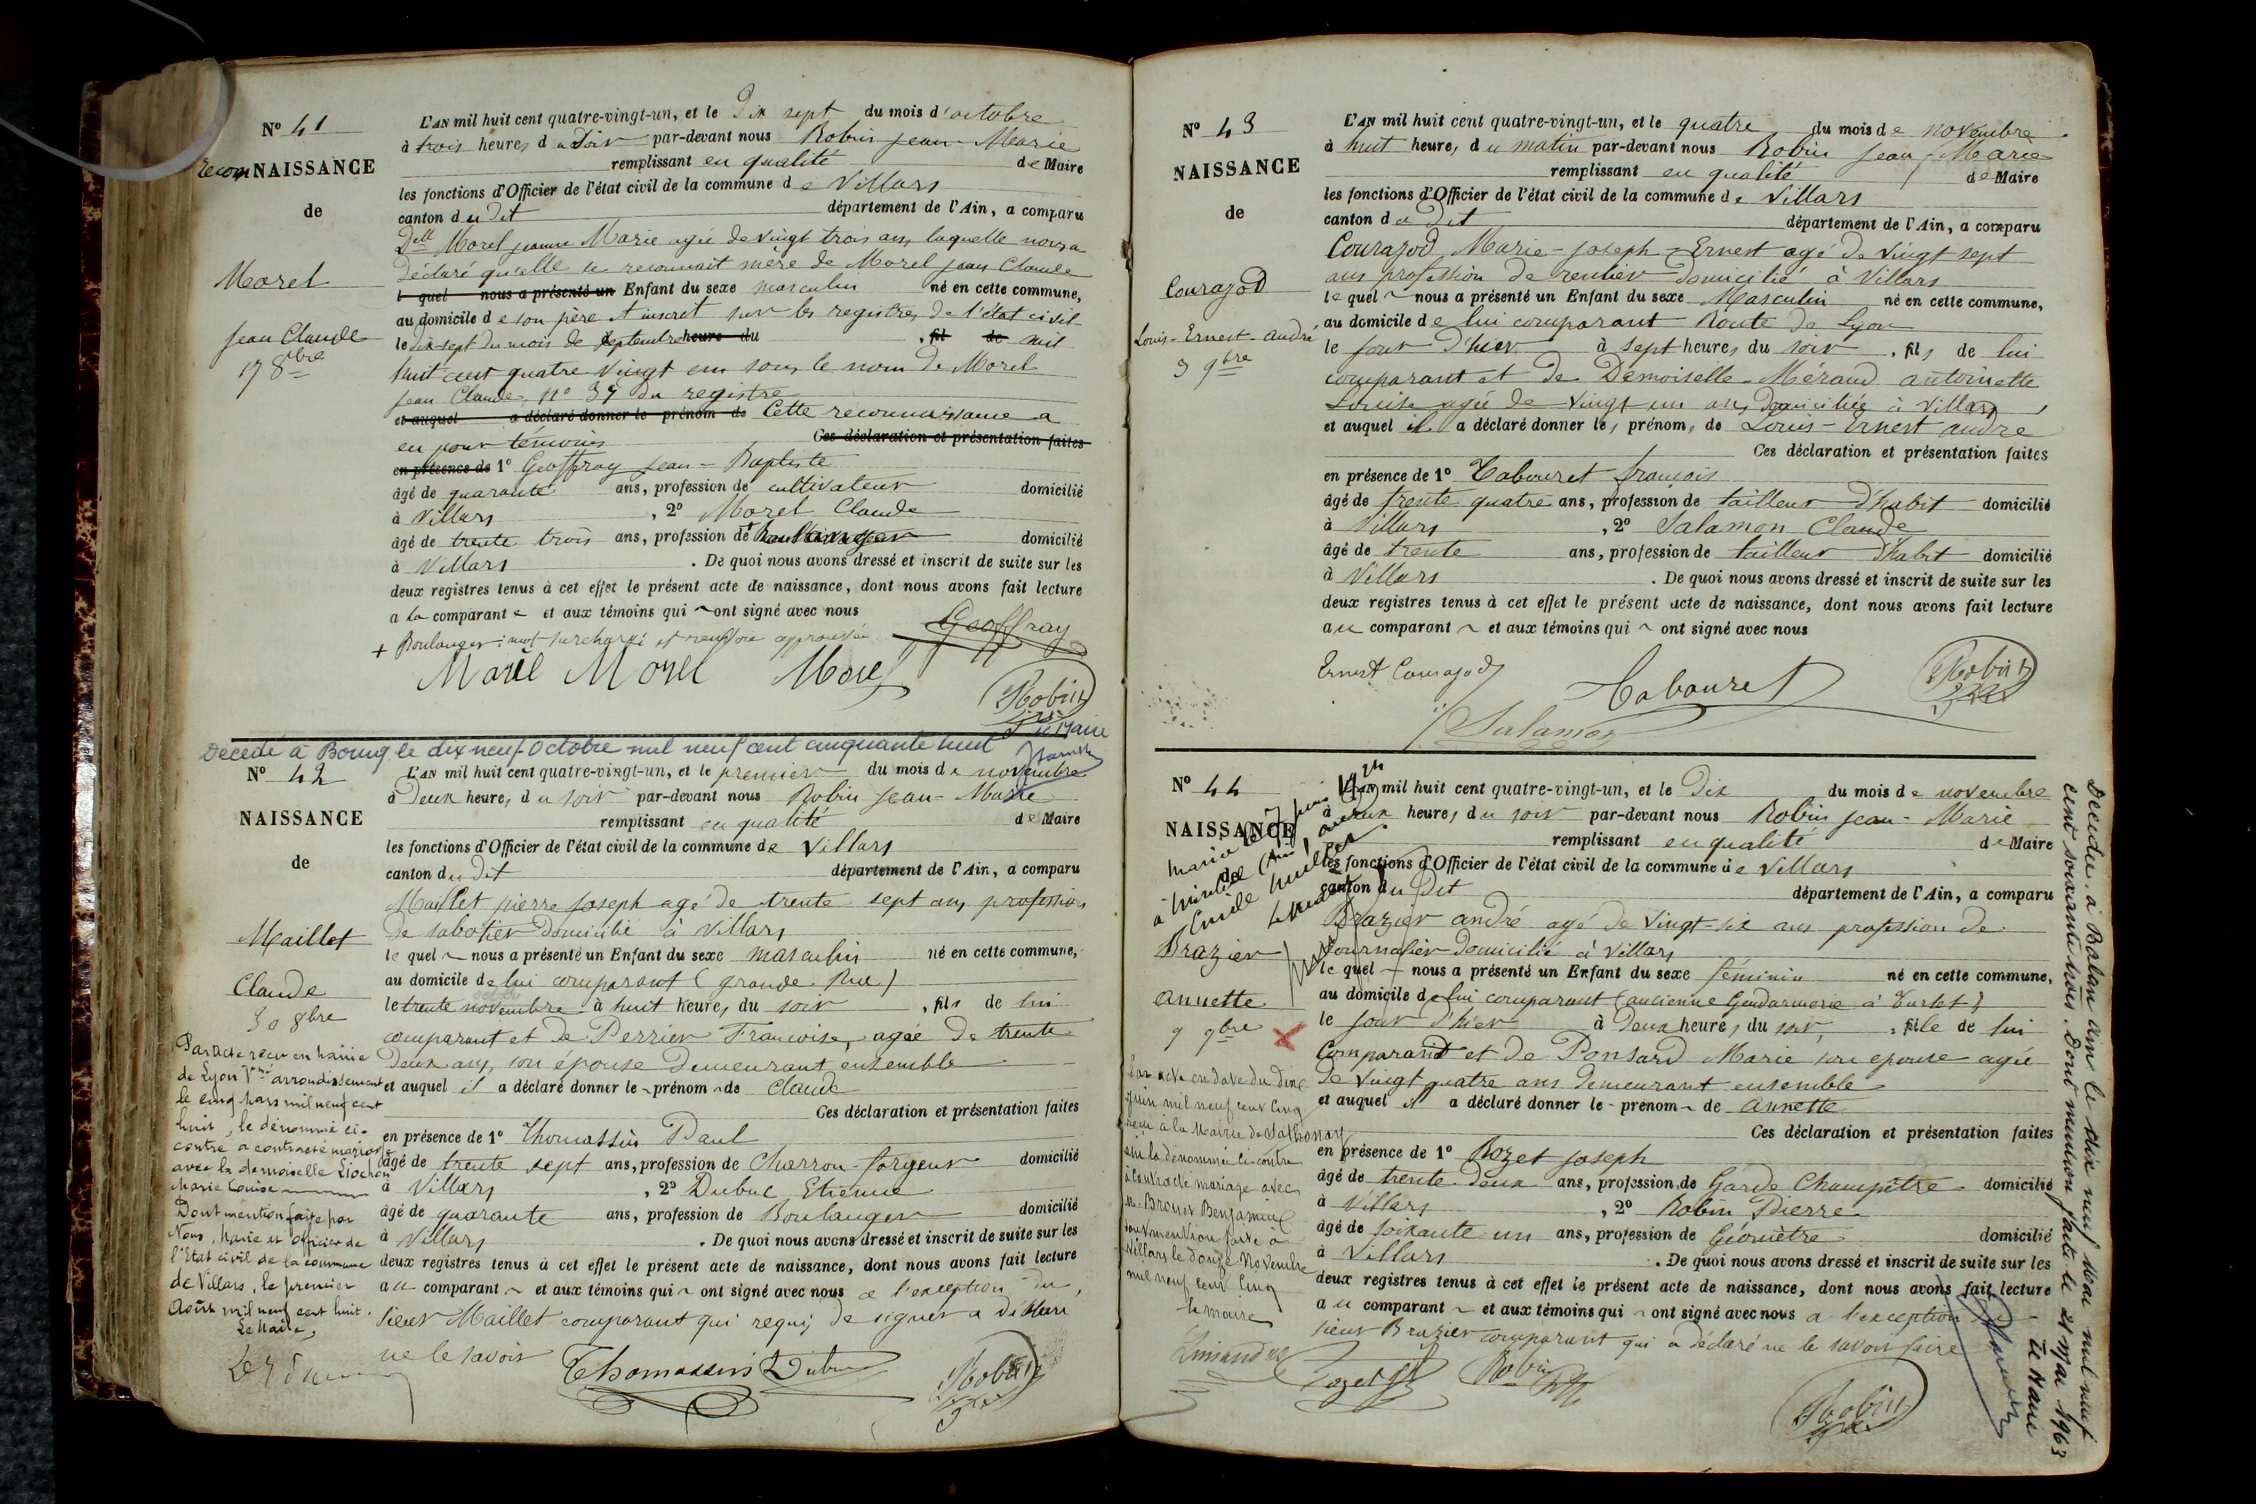 N° 41
reconNAISSANCE
de
Morel
Jean Claude
17 8bre
L'AN mil huit cent quatre-vingt-un, et le Dix sept du mois d'octobre
à trois heures du Soir par-devant nous Robin Jean-Marie
remplissant en qualité de Maire
les fonctions d'Officier de l'état civil de la commune de Villars
canton du dit département de l'Ain, a comparu
Delle Morel jeanne Marie agée de vingt trois ans laquelle nous a
déclaré qu'elle se reconnait mère de Morel Jean Claude
l quel nous a présenté un Enfant du sexe masculin né en cette commune,
au domicile de son père et inscrit sur les registres de l'état civil
le dix sept du mois de septembre heure du , fil de mil
huit cent quatre vingt un sous le nom de Morel
Jean Claude, N° 37 du registre
et auquel a déclaré donner le prénom de Cette reconnaissance a
eu pour témoins Ces déclaration et présentation faites
en présence de 1° Geoffray Jean-Baptiste
âgé de quarante ans, profession de cultivateur domicilié
à Villars , 2° Morel Claude
âgé de trente trois ans, profession de + domicilié
à Villars . De quoi nous avons dressé et inscrit de suite sur les
deux registres tenus à cet effet le présent acte de naissance, dont nous avons fait lecture
a la comparante et aux témoins qui ont signé avec nous
+ Boulanger: mot surchargé et renvoi approuvés
Geoffray
Marie Morel Morel
Robin
Décédé à Bourg le dix neuf Octobre mil neuf cent cinquante huit
le Maire
N° 42
NAISSANCE
de
Maillet
Claude
30 8bre
Par acte reçu en mairie
de Lyon Vme arrondissement
le cinq Mars mil neuf cent
huit, le dénommé ci-
contre a contracté mariage
avec la demoiselle Liochon
Marie Louise
Dont mention faite par
Nous, Maire et officier de
l'Etat civil de la commune
de Villars, le premier
Août mil neuf cent huit.
Le Maire,
L'AN mil huit cent quatre-vingt-un, et le premier du mois de novembre
à Deux heures du soir par-devant nous Robin Jean-Marie
remplissant en qualité de Maire
les fonctions d'Officier de l'état civil de la commune de Villars
canton du dit département de l'Ain, a comparu
Maillet pierre Joseph agé de trente sept ans, profession
de sabotier domicilié à Villars
le quel nous a présenté un Enfant du sexe masculin né en cette commune,
au domicile de lui comparant (grande Rue)
le trente novembre à huit heures du soir , fils de lui
comparant et de Perrier Francoise, agée de trente
Deux ans, son épouse demeurant ensemble
et auquel il a déclaré donner le prénom de Claude
Ces déclaration et présentation faites
en présence de 1° Thomassin Paul
âgé de trente sept ans, profession de Charron-forgeur domicilié
à Villars , 2° Dubuc Etienne
âgé de quarante ans, profession de Boulanger domicilié
à Villars . De quoi nous avons dressé et inscrit de suite sur les
deux registres tenus à cet effet le présent acte de naissance, dont nous avons fait lecture
au comparant et aux témoins qui ont signé avec nous a l'exception du
sieur Maillet comparant qui requis de signer a dit
ne le savoir
Thomassin Dubuc
Robin
N° 43
NAISSANCE
de
Courajod
Louis-Ernest-andré
3 9bre
L'AN mil huit cent quatre-vingt-un, et le quatre du mois de novembre
à huit heures du matin par-devant nous Robin Jean-Marie
remplissant en qualité de Maire
les fonctions d'Officier de l'état civil de la commune de Villars
canton du dit département de l'Ain, a comparu
Courajod Marie-Joseph-Ernest agé de vingt sept
ans profession de rentier domicilié à Villars
le quel nous a présenté un Enfant du sexe Masculin né en cette commune,
au domicile de lui comparant Route de Lyon
le jour d'hier à sept heures du soir , fils de lui
comparant et de Demoiselle Méraud antoinette
Louise agée de vingt un ans, Domiciliée à Villars
et auquel il a déclaré donner les prénoms de Louis-Ernest andré
Ces déclaration et présentation faites
en présence de 1° Tabouret françois
âgé de trente quatre ans, profession de tailleur d'habit domicilié
à Villars , 2° Salamon Claude
âgé de trente ans, profession de tailleur d'habit domicilié
à Villars . De quoi nous avons dressé et inscrit de suite sur les
deux registres tenus à cet effet le présent acte de naissance, dont nous avons fait lecture
au comparant et aux témoins qui ont signé avec nous
Ernest Courajod Tabouret Robin
Salamon
N° 44
NAISSANCE
de
Brazier
annette
9 9bre
Par acte en date du dix
juin mil neuf cent cinq
reçu à la Mairie de Sathonay
la dénommée ci-contre
a contracté mariage avec
M. Broues Benjamin
dont mention faite à
Villars le douze Novembre
mil neuf cent cinq
le maire
L'AN mil huit cent quatre-vingt-un, et le Dix du mois de novembre
à Deux heures du soir par-devant nous Robin Jean-Marie
remplissant en qualité de Maire
les fonctions d'Officier de l'état civil de la commune de Villars
canton du dit département de l'Ain, a comparu
Brazier andré agé de vingt-six ans profession de
Journalier domicilié à Villars
le quel nous a présenté un Enfant du sexe féminin né en cette commune,
au domicile de lui comparant (ancienne Gendarmerie
le jour d'hier à Deux heures du soir, , fille de lui
Comparant et de Ponsard Marie son epouse agée
de vingt quatre ans demeurant ensemble
et auquel il a déclaré donner le prénom de annette
Ces déclaration et présentation faites
en présence de 1° Rozet Joseph
âgé de trente deux ans, profession de Garde Champêtre domicilié
à Villars , 2° Robin Pierre
âgé de soixante un ans, profession de Géomètre domicilié
à Villars . De quoi nous avons dressé et inscrit de suite sur les
deux registres tenus à cet effet le présent acte de naissance, dont nous avons fait lecture
au comparant et aux témoins qui ont signé avec nous a l'exception
sieur Brazier comparant qui a déclaré ne le savoir faire
Rozet Robin
Robin
Décédée à Balan Ain le dix neuf mai mil neuf
cent soixante trois. Dont mention faite le 21 Mai 1963
Le Maire